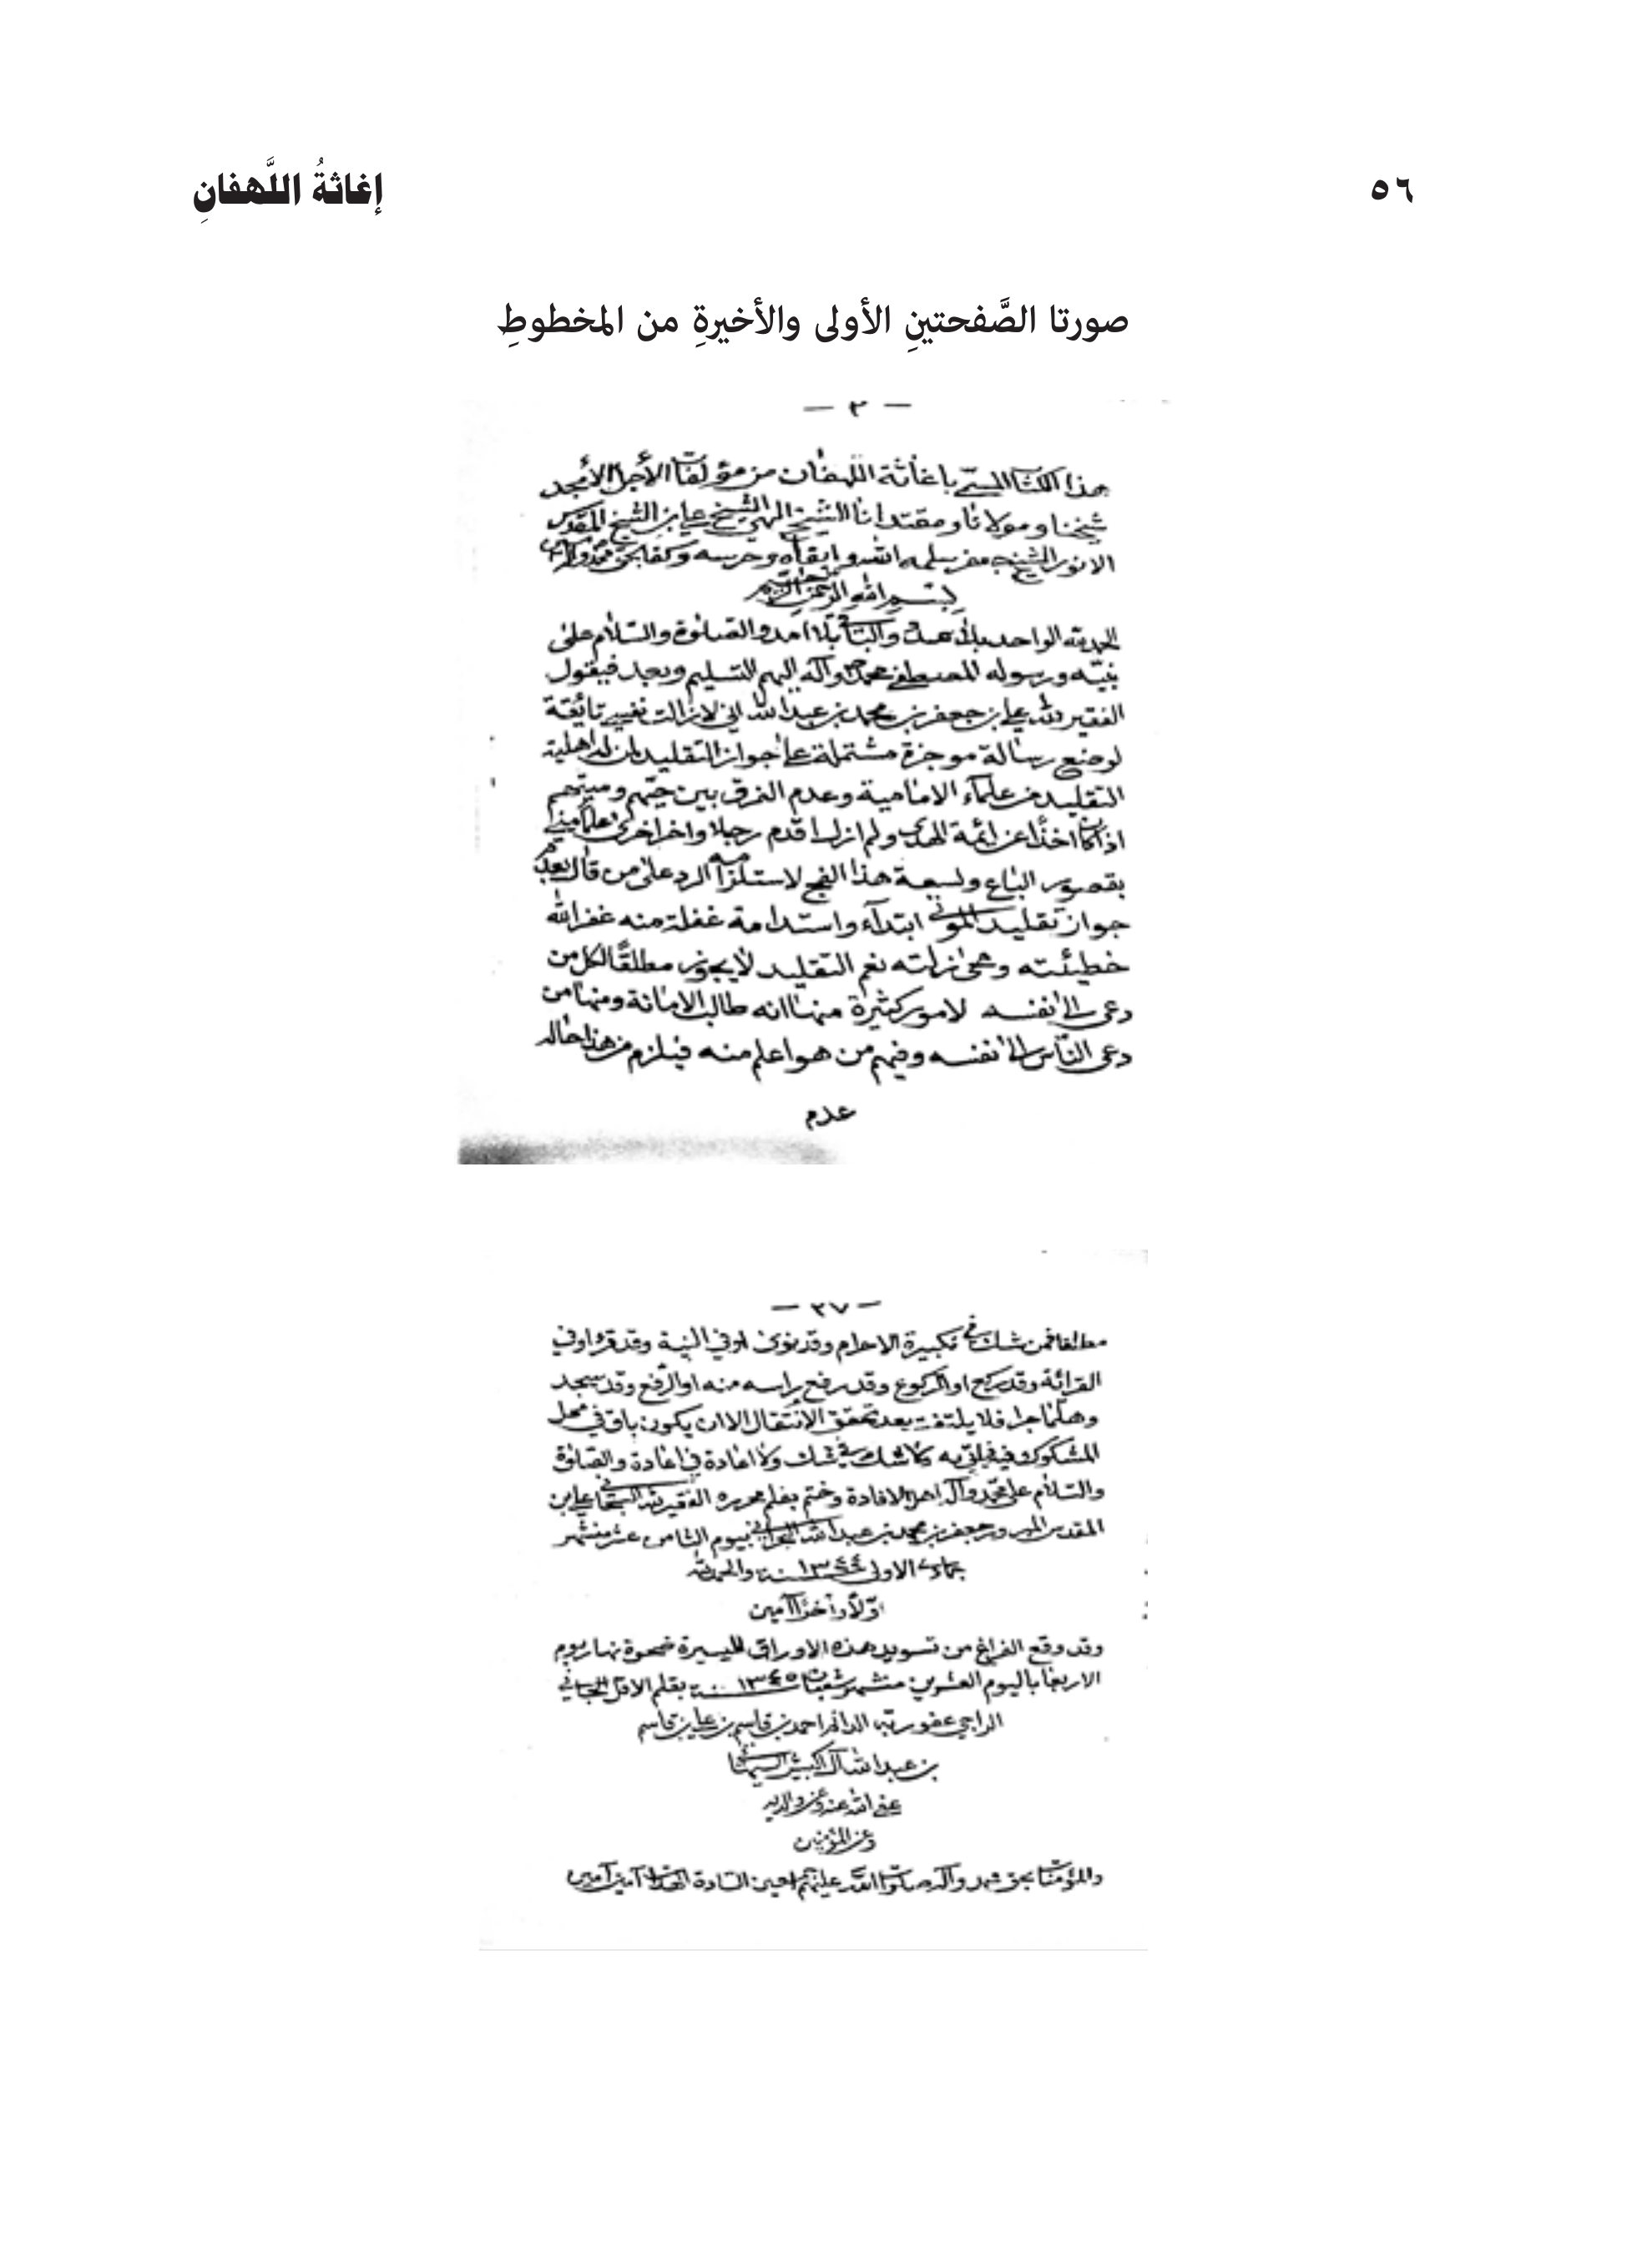 ٥٦
إغاثةُ اللَّهفانِ
صورتا الصَّفحتينِ الأولى والأخيرةِ من المخطوطِ
— ٢ —
هذا الكتاب المسمى باغاثة اللهفان من مؤلفات الأجل الأمجد
شيخنا ومولانا ومقتدانا الشيخ الشيخ علي ابن الشيخ المقدس
الانور الشيخ جعفر سلمه الله وابقاه وحرسه وكفا بحق محمد
بسم الله الرحمن الرحيم
الحمد لله الواحد بلا عدد والباقي بلا امد والصلوة والسلام على
نبيّه ورسوله المصطفى محمد وآله اليهم التسليم وبعد فيقول
الفقير لله علي بن جعفر بن محمد بن عبد الله اني لا زالت نفسي تائقة
لوضع رسالة موجزة مشتملة على جواز التقليد لمن له اهلية
التقليد من علماء الامامية وعدم الفرق بين حيّهم وميتهم
اذا كان اخذا عن ائمة الهدى ولم ازل اقدم رجلا واخر اخرى علما مني
بقصور الباع ولسعة هذا الفج لاستلزامه الرد على من قال بعدم
جواز تقليد الموتى ابتدآء واستدامة غفلة منه غفر الله
خطيئته ومحى زلته نعم التقليد لا يجوز مطلقًا لكل من
دعى الى نفسه لامور كثيرة منها انه طالب الامانة ومنها من
دعى الناس الى نفسه وفيهم من هو اعلم منه فيلزم من هذا حاله
عدم
— ٣٧ —
مطلقا فمن شك في تكبيرة الاحرام وقد نوى او في النية وقد قرء او في
القرائة وقد ركع او الركوع وقد رفع راسه منه او الرفع وقد سجد
وهكذا جرا فلا يلتفت بعد تحقق الانتقال الا ان يكون باق في محل
المشكوك فيه فيلق به ولا شك في شك ولا اعادة في اعادة والصلوة
والسلام على محمد وآل اهل الافادة وختم بقلم محرره الفقير لله علي ابن
المقدس المبرور جعفر بن محمد بن عبد الله البحراني بيوم الثامن عشر من شهر
جمادى الاولى سنة ١٣٤٤ والحمد لله
اوّلا وآخرًا آمين
وقد وقع الفراغ من تسويد هذه الاوراق اليسيرة ضحوة نهار يوم
الاربعا باليوم العشرين من شهر شعبان سنة ١٣٤٥ بقلم الاقل الجاني
الراجي عفو ربه احمد بن قاسم بن علي بن قاسم
بن عبد الله آل
عفى الله عنه وعن والديه
وعن المؤمنين
والمؤمنات بحق محمد وآله صلوات الله عليهم اجمعين السادة آمين آمين